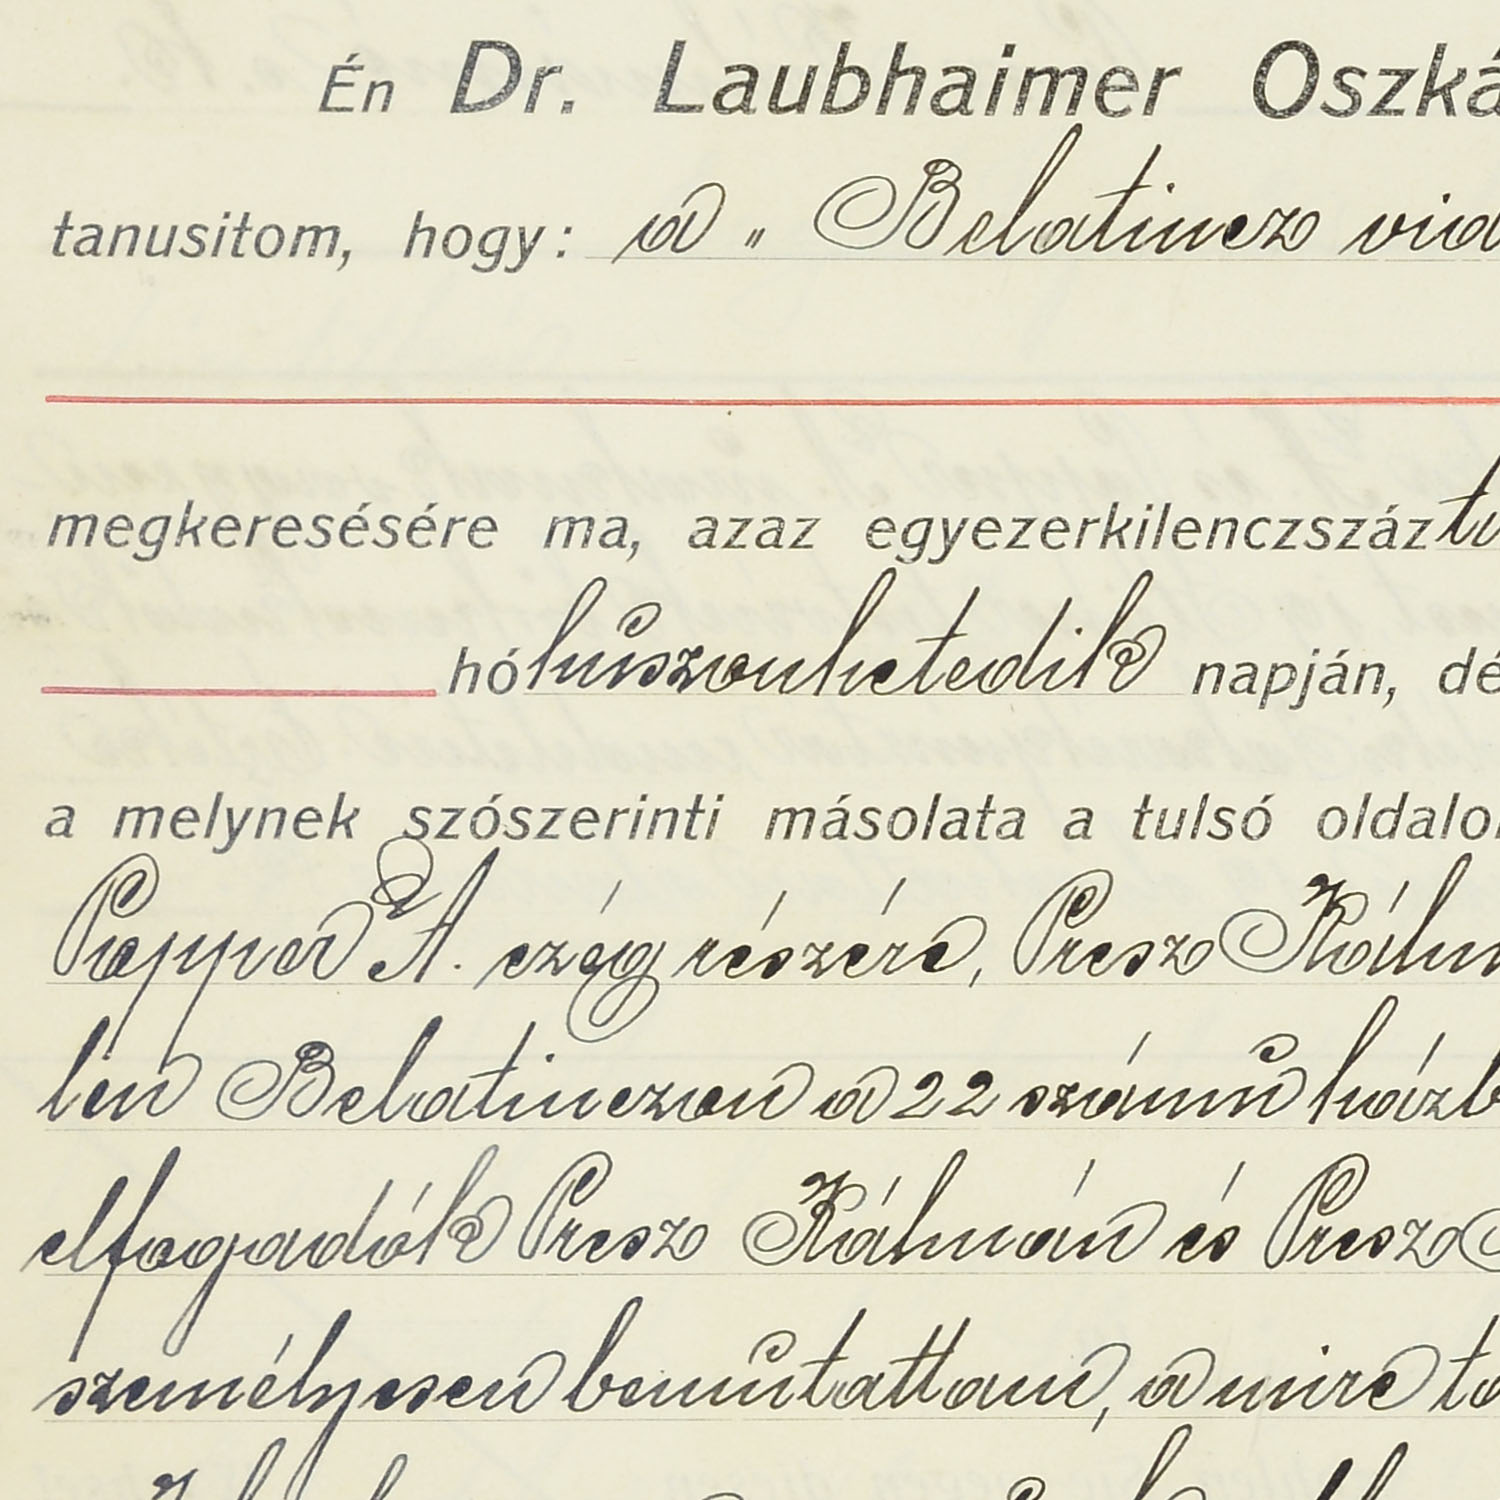 Én Dr. Laubhaimer Oszká
tanusitom, hogy: a „Belatincz vid
megkeresésére ma, azaz egyezerkilenczszáz
hó huszonhetedik napján, dé
a melynek szószerinti másolata a tulsó oldalo
Popper A. czég részére, Presz Kálm
len Belatinczon a 22 számu házb
elfogadók Presz Kálmán és Presz
személyesen bemutattam, a mire ta